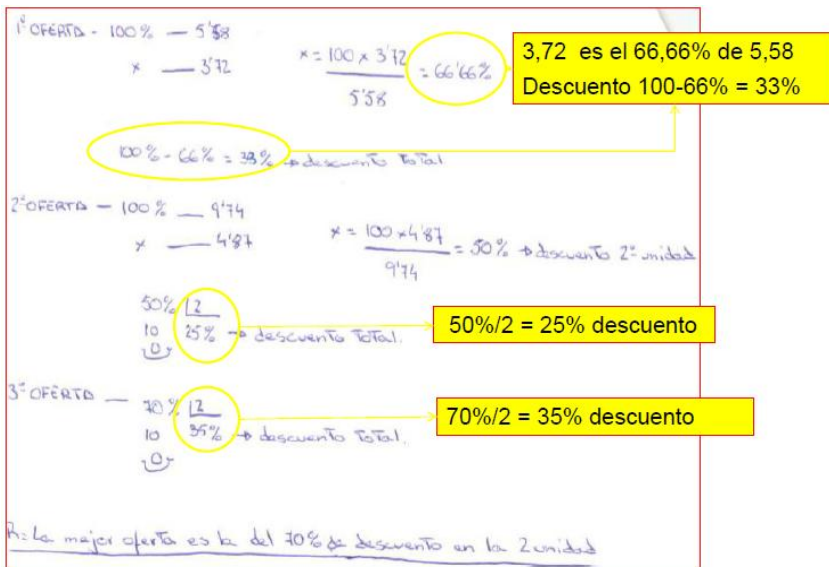 1ª OFERTA - 100% — 5'58
x — 3'72
x = 100 x 3'72 = 66'66%
5'58
3,72 es el 66,66% de 5,58
Descuento 100-66% = 33%
100% - 66% = 33% → descuento total
2ª OFERTA — 100% — 9'74
x — 4'87
x = 100 x 4'87 = 50% → descuento 2ª unidad
9'74
50% 2
10 25% → descuento total.
0
50%/2 = 25% descuento
3ª OFERTA — 70% 2
10 35% → descuento total.
0
70%/2 = 35% descuento
R: La mejor oferta es la del 70% de descuento en la 2 unidad